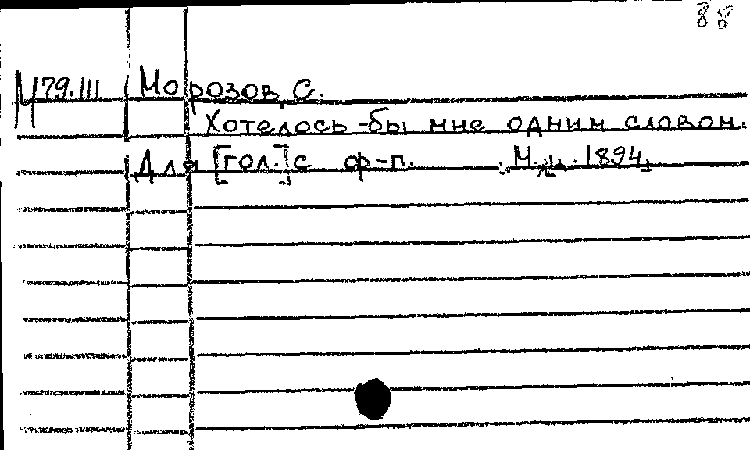 88
Ц79.III Морозов, С.
Хотелось-бы мне одним словом.
Для [гол.] с ф-п. М., ц. 1894.